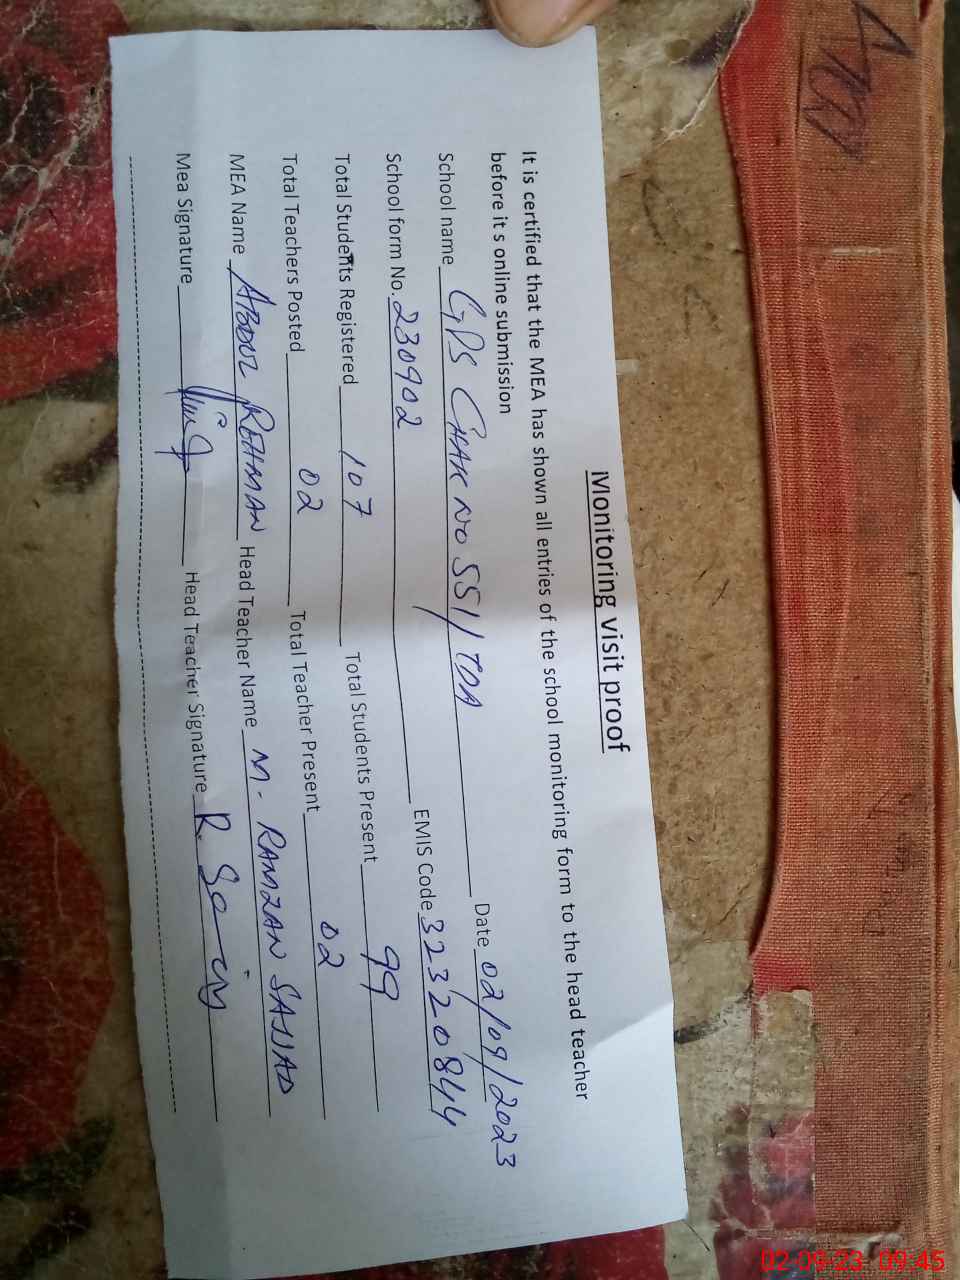 Monitoring visit proof
It is certified that the MEA has shown all entries of the school monitoring form to the head teacher
before it s online submission
School name GPS CHAK NO 551/TDA Date 02/09/2023
School form No. 230902 EMIS Code 32320844
Total Students Registered 107 Total Students Present 99
Total Teachers Posted 02 Total Teacher Present 02
MEA Name ABDUL REHMAN Head Teacher Name M. RAMZAN SAJJAD
Mea Signature Head Teacher Signature
02-09-23 09:45